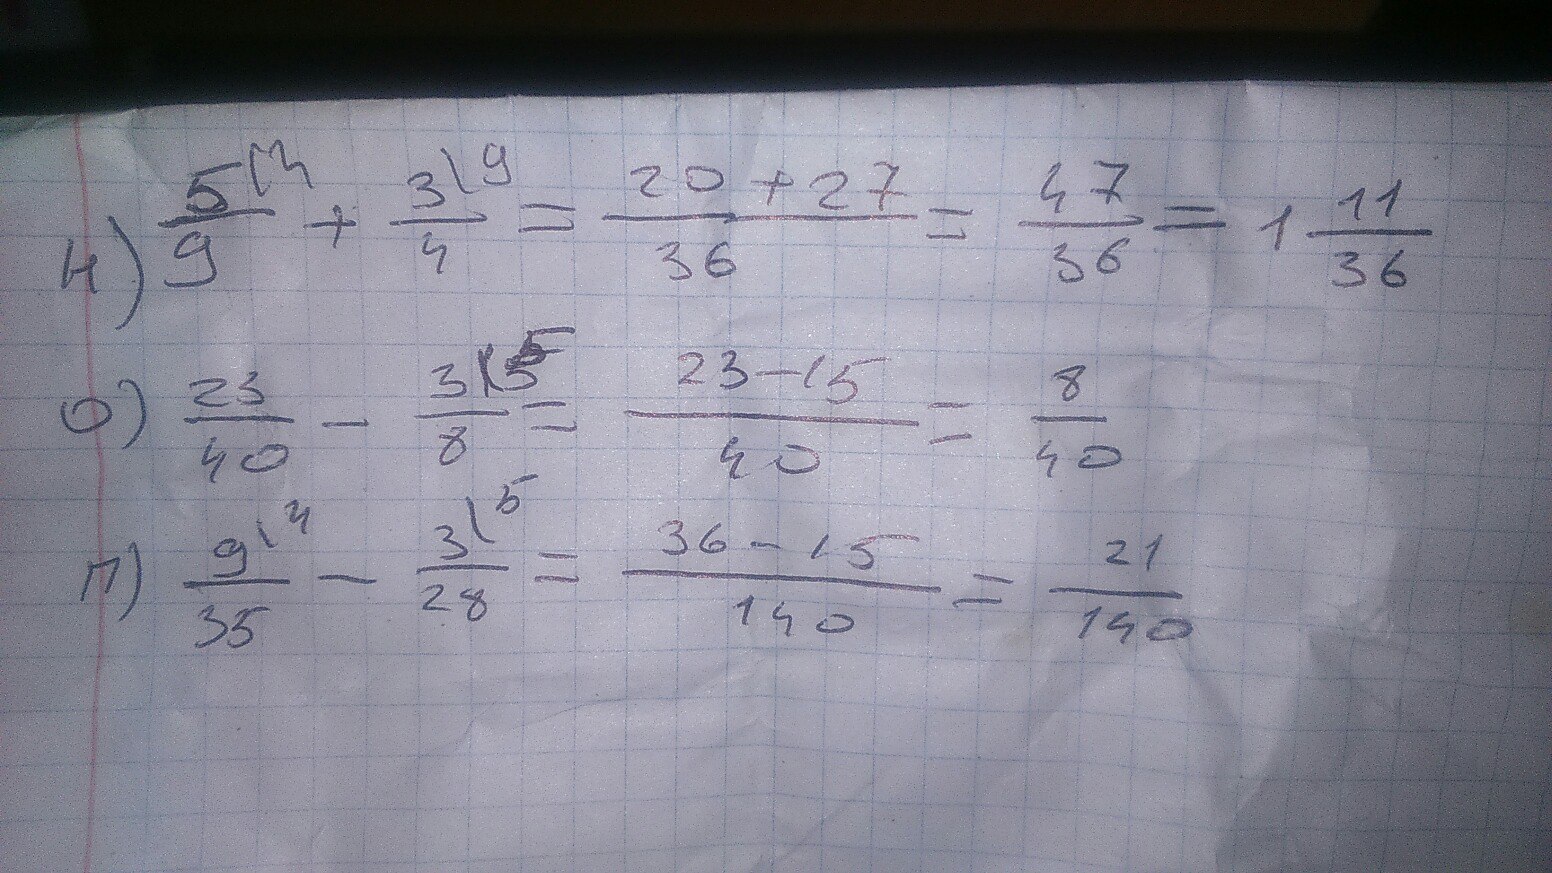 н) 5\4/9 + 3\9/4 = 20+27/36 = 47/36 = 1 11/36
о) 23/40 - 3\5/8 = 23-15/40 = 8/40
п) 9\4/35 - 3\5/28 = 36-15/140 = 21/140